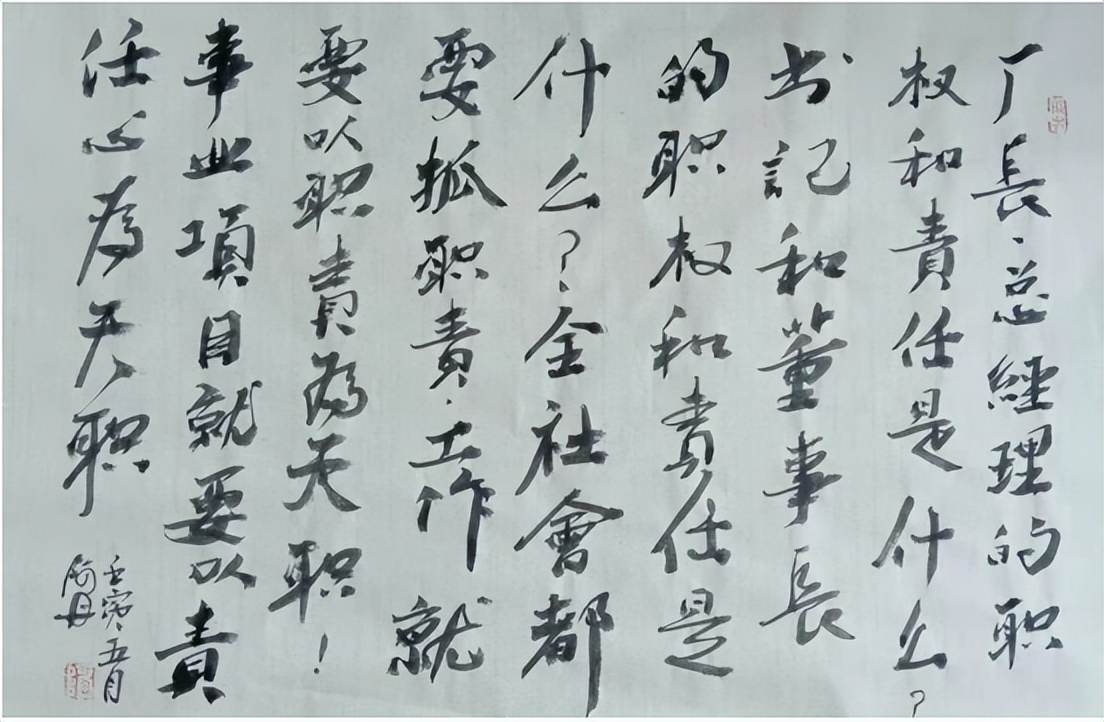 厂長、总經理的职
权和責任是什么?
书記和董事長
的职权和責任是
什么?、全社會都
要抓职責、工作就
要以职責為天职!
事业項目就要以責
任心為天职
壬寅、五月